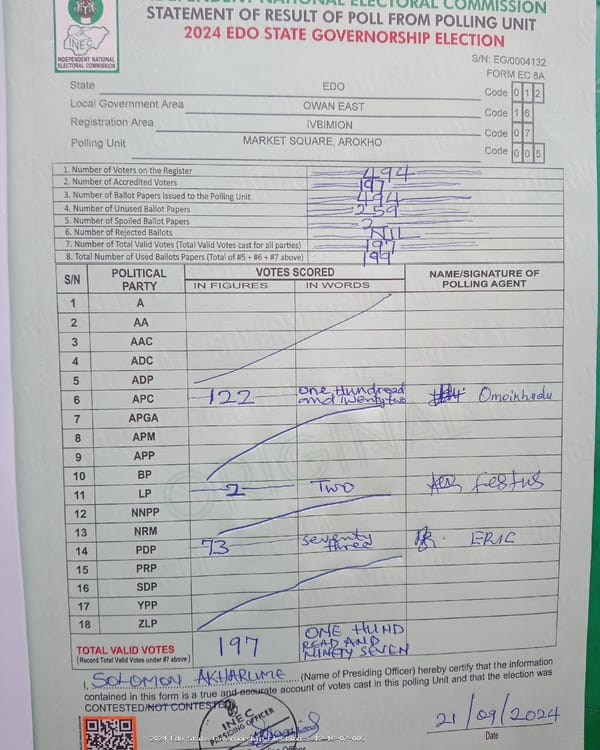 INDEPENDENT NATIONAL ELECTORAL COMMISSION
STATEMENT OF RESULT OF POLL FROM POLLING UNIT
2024 EDO STATE GOVERNORSHIP ELECTION
INEC
INDEPENDENT NATIONAL
ELECTORAL COMMISSION
S/N: EG/0004132
FORM EC 8A
State EDO Code 0 1 2
Local Government Area OWAN EAST Code 1 6
Registration Area IVBIMION Code 0 7
Polling Unit MARKET SQUARE, AROKHO Code 0 0 5
1. Number of Voters on the Register 494
2. Number of Accredited Voters 197
3. Number of Ballot Papers Issued to the Polling Unit 494
4. Number of Unused Ballot Papers 259
5. Number of Spoiled Ballot Papers 2
6. Number of Rejected Ballots NIL
7. Number of Total Valid Votes (Total Valid Votes cast for all parties) 197
8. Total Number of Used Ballots Papers (Total of #5 + #6 + #7 above) 199
S/N POLITICAL PARTY VOTES SCORED NAME/SIGNATURE OF POLLING AGENT
IN FIGURES IN WORDS
1 A
2 AA
3 AAC
4 ADC
5 ADP
6 APC 122 One Hundread and Twenty two Omoikhudu
7 APGA
8 APM
9 APP
10 BP
11 LP 2 TWO Festus
12 NNPP
13 NRM
14 PDP 73 Seventy three ERIC
15 PRP
16 SDP
17 YPP
18 ZLP
ORIGINAL
TOTAL VALID VOTES 197 ONE HUND READ AND NINETY SEVEN
(Record Total Valid Votes under #7 above)
I, SOLOMON AKHARUME (Name of Presiding Officer) hereby certify that the information
contained in this form is a true and accurate account of votes cast in this polling Unit and that the election was
CONTESTED/NOT CONTESTED
INEC
PRESIDING OFFICER
21/09/2024
Date